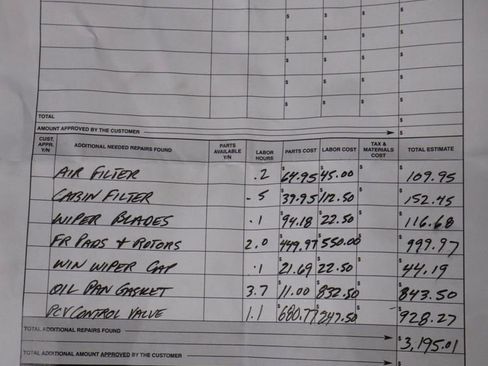 $ $ $ $
$ $ $ $
$ $ $ $
$ $ $ $
$ $ $ $
TOTAL $
AMOUNT APPROVED BY THE CUSTOMER $
CUST. APPR. Y/N ADDITIONAL NEEDED REPAIRS FOUND PARTS AVAILABLE Y/N LABOR HOURS PARTS COST LABOR COST TAX & MATERIALS COST TOTAL ESTIMATE
AIR FILTER .2 $64.95 $45.00 $ $109.95
CABIN FILTER .5 $39.95 $112.50 $ $152.45
WIPER BLADES .1 $94.18 $22.50 $ $116.68
FR PADS + ROTORS 2.0 $449.97 $550.00 $ $999.97
WIN WIPER CAP .1 $21.69 $22.50 $ $44.19
OIL PAN GASKET 3.7 $11.00 $832.50 $ $843.50
PCV CONTROL VALVE 1.1 $680.77 $247.50 $ $928.27
TOTAL ADDITIONAL REPAIRS FOUND $3,195.01
TOTAL ADDITIONAL AMOUNT APPROVED BY THE CUSTOMER $